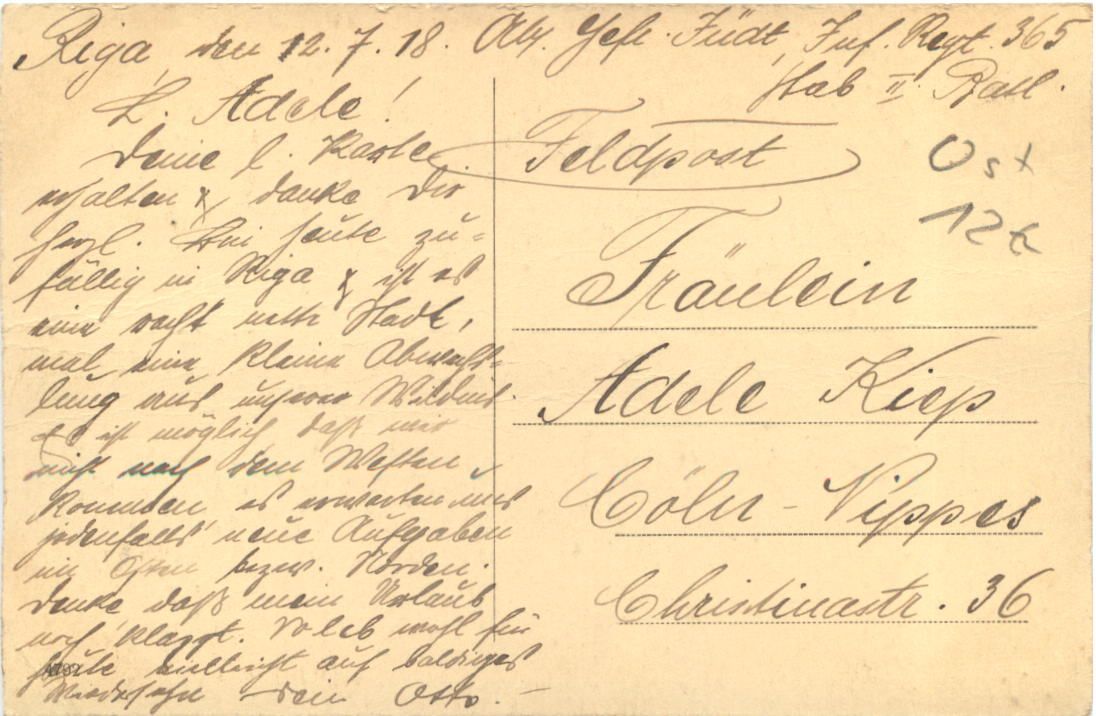 Riga, den 12.7.18. Abs. Gefr. Jüdt, Inf. Regt. 365
Stab II. Batl.
L. Adele!
Deine l. Karte
erhalten & danke Dir
herzl. Bin heute zu-
fällig in Riga & ist es
eine recht nette Stadt,
mal eine kleine Abwechs-
lung aus unserer Wildnis.
Es ist möglich daß wir
nicht nach dem Westen
kommen es erwarten uns
jedenfalls neue Aufgaben
im Osten bezw. Norden.
Denke daß mein Urlaub
noch klappt. So leb wohl für
heute vielleicht auf baldiges
Wiedersehn Dein Otto.
Feldpost
Ost
12
Fräulein
Adele Kiep
Cöln-Nippes
Christinastr. 36